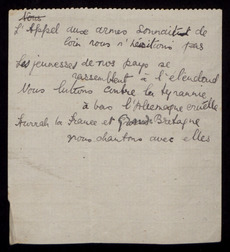 Nous
L'Appel aux armes sonnait de
loin nous n'hésitions pas
Les jeunesses de nos pays se
rassemblent à l'étendard
Nous luttons contre la tyrannie
à bas l'Allemagne cruelle
Hurrah la France et Grande Bretagne
nous chantons avec elles